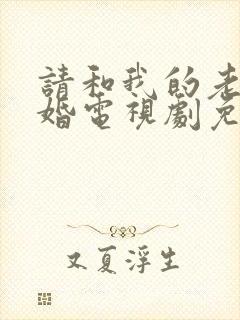 請和我的老
婚電視劇免
又夏浮生